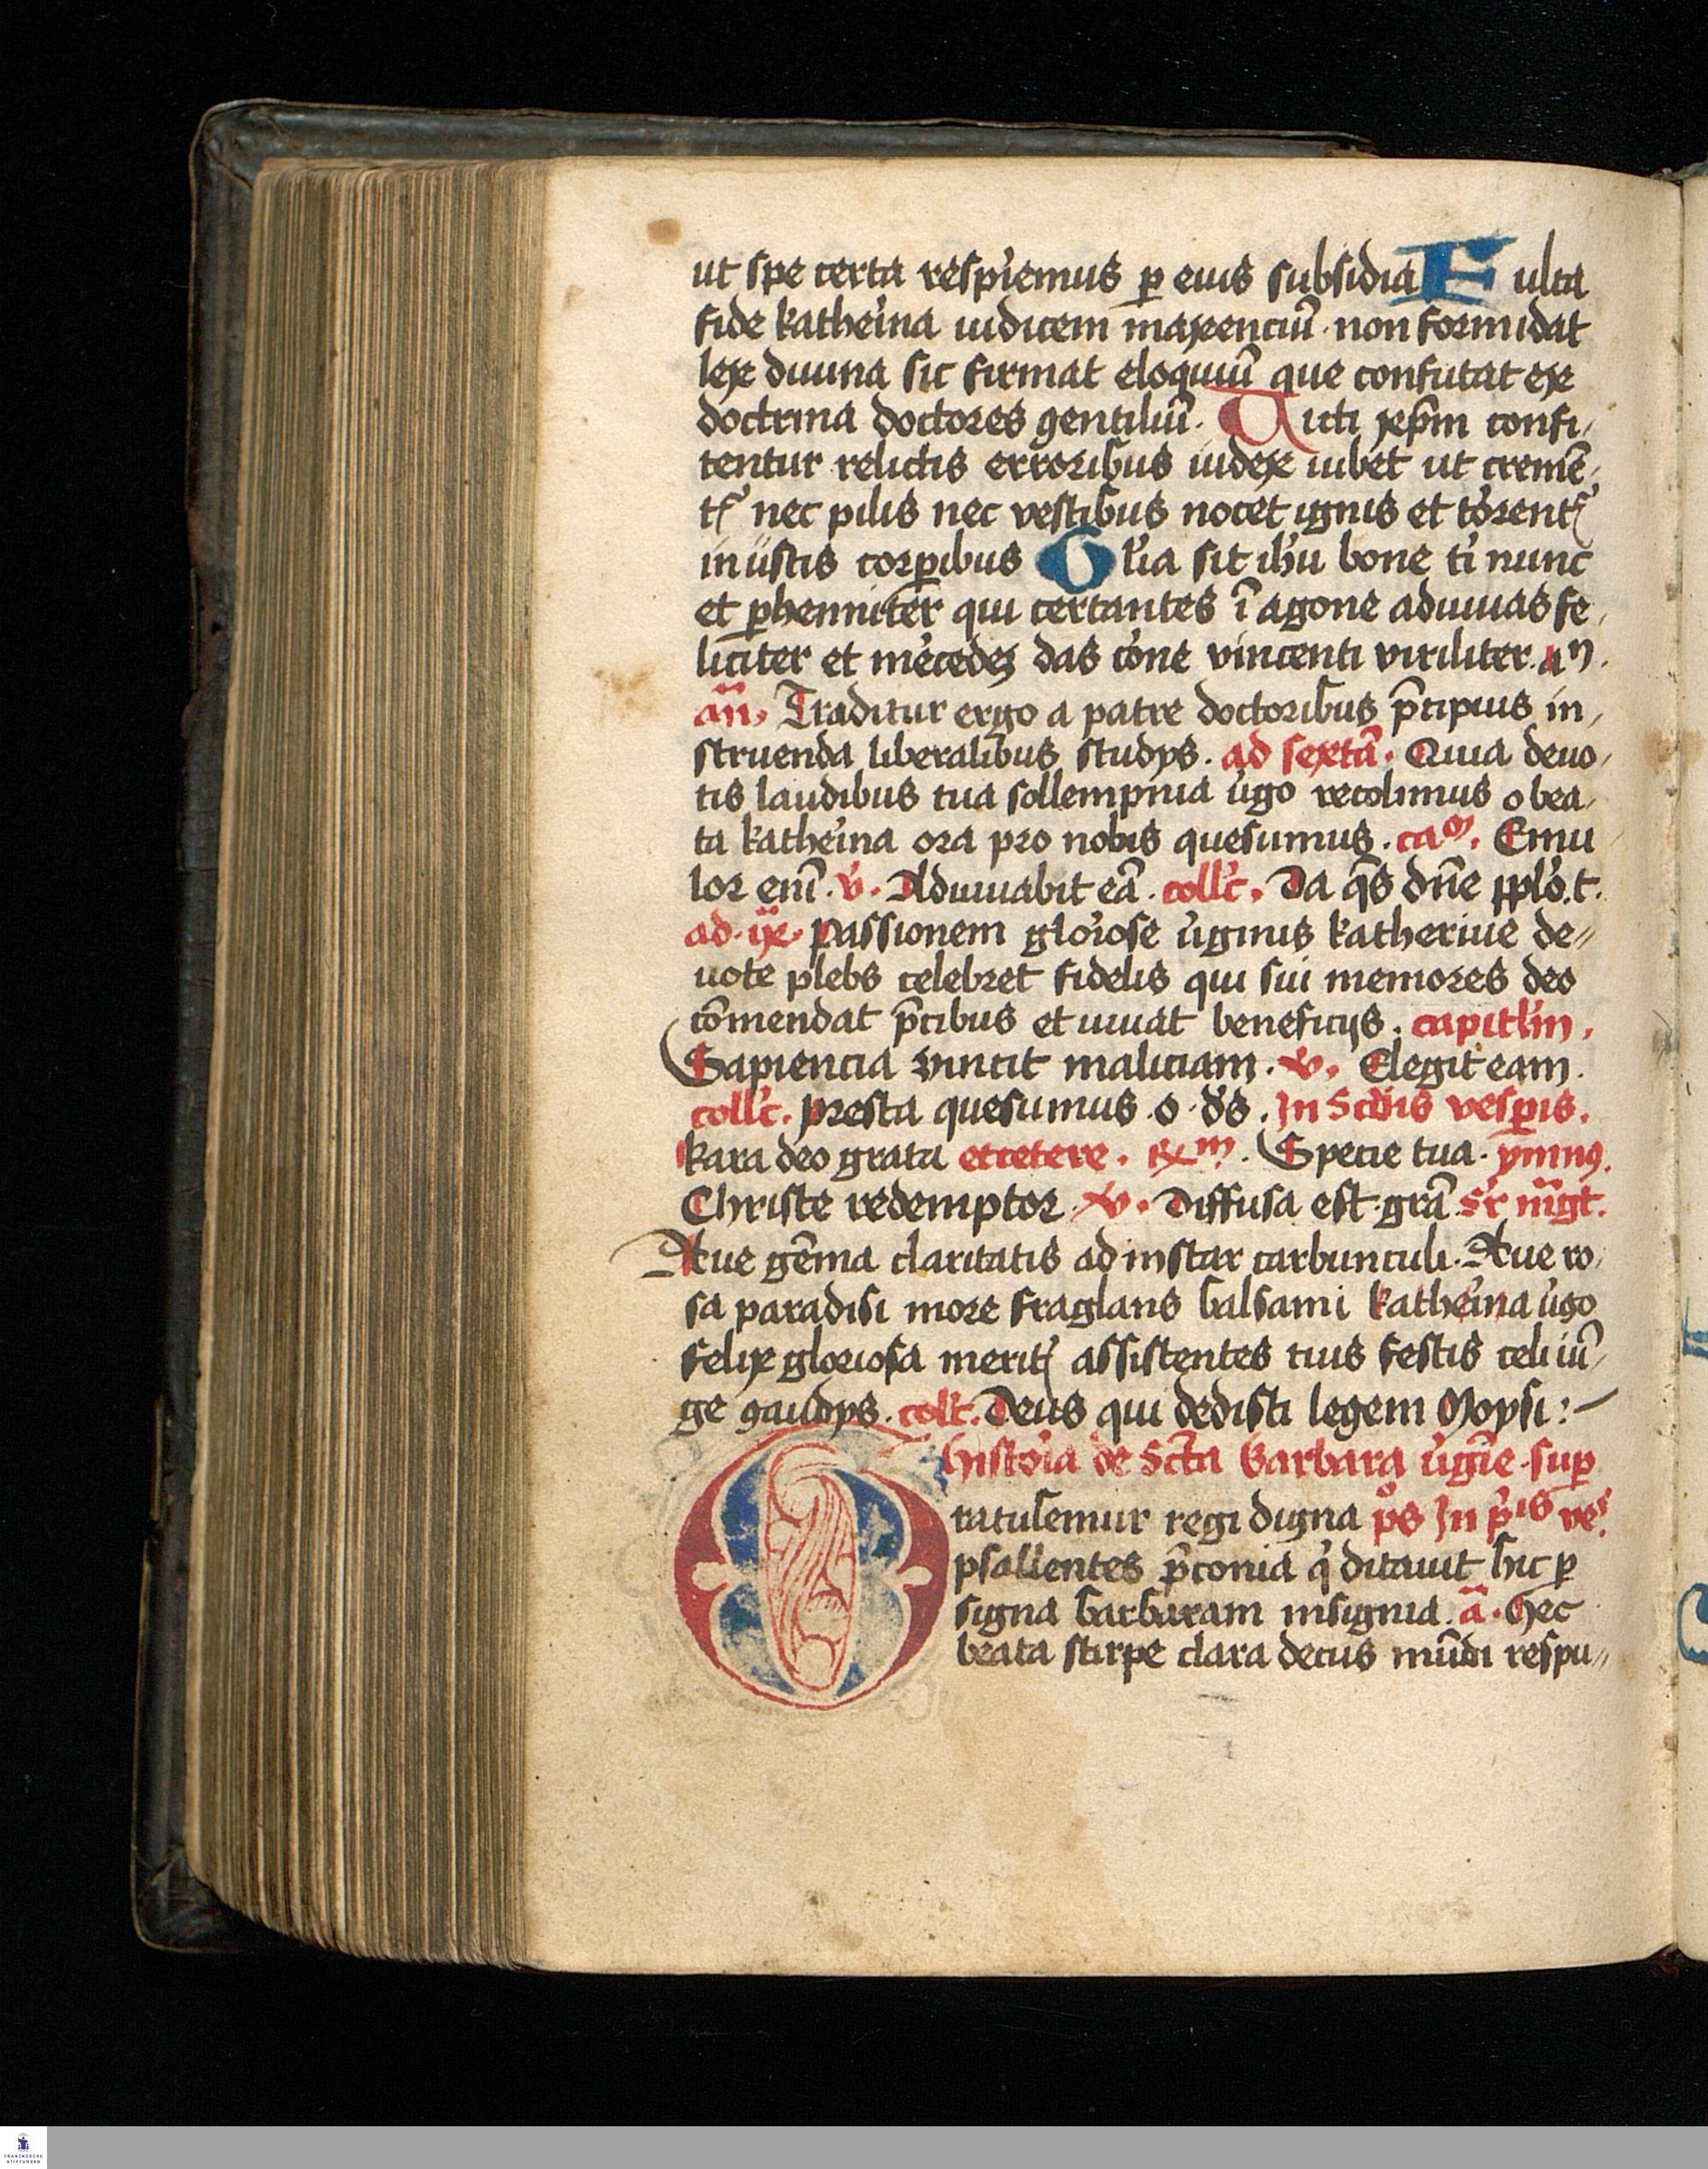 ut spe certa respi'emus p̱ eius subsidia Fulta
fide kathe'ina iudicem maxenciū · non formidat
lex diuina sic firmat eloquiū que confutat ex
doctrina doctores gentiliū · Uicti xp̄m confi,
tentur relictis erroribus iudex iubet ut cremē,
tr̃ nec pilis nec vestibus nocet ignis et to'rentr̃
in iïstis corp̱ibus Gl'ia sit ih'u bone ti' nunc
et p̱henniter qui certantes ī agone adiuuas fe,
liciter et me'cedeʒ das co'one vincenti viriliter. am̃.
añ, Traditur ergo a patre doctoribus p̄cipuis in,
struenda liberalibus studys. ad sextā. Quia deuo,
tis laudibus tua sollempnia u'go recolimus o bea,
ta kathe'ina ora pro nobis quesumus. caᵐ. Emu
lor enī. v'. Adiuuabit eā. coll'c. Da q̄s dn̄e pplo'. t.
ad. ix. passionem glo'iose u'ginis katherine de„
uote plebs celebret fidelis qui sui memores deo
cōmendat p̄cibus et iuuat beneficijs. capitl'm,
Sapiencia vincit maliciam. v. Elegit eam.
coll'c. presta quesumus. o. d's. In Scdis vesp̱is.
kara deo grata etcetere. Rxᵐ. Specie tua. ymnꝰ.
Christe redemptor. v. Diffusa est grā. sr̄ mg̃t.
Aue gēma claritatis ad instar carbunculi. Aue ro,
sa paradisi more fraglans balsami kathe'ina u'go
felix gloriosa meritʒ assistentes tuis festis celi iū,
ge gaudys. coll'c. Deus qui dedisti legem Moysi :-
histo'ia de Sctā Barbara u'gīe. sup̱
Gratulemur regi digna ps In p'is ves'.
psallentes p̄conia q' ditauit hic p̱
signa barbaram insignia. ā. Hec
beata stirpe clara decus mūdi respu„
FRANCKESCHE
STIFTUNGEN